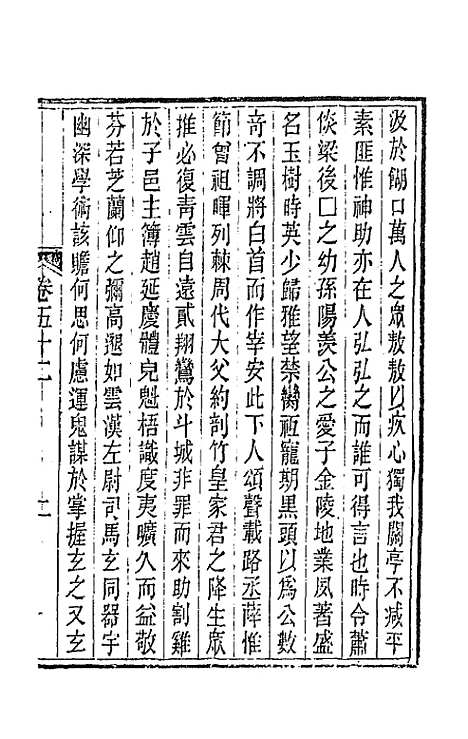 汲於餬口萬人之眾敖敖以疚心獨我關亭不减平
素匪惟神助亦在人弘弘之而誰可得言也時令蕭
倓梁後囗之幼孫陽羨公之愛子金陵地業夙著盛
名玉樹時英少歸雅望禁臠衹寵期黑頭以爲公數
奇不調將白首而作宰安此下人頌聲載路丞薛惟
節曾祖暉列棘周代大父約剖竹皇家君之降生眾
推必復青雲自遠貳翔鸞於斗城非罪而來助割雞
於子邑主簿趙延慶體皃魁梧識度夷曠久而益敬
芬若芝蘭仰之彌高邈如雲漢左尉司馬玄同器宇
幽深學術該贍何思何慮運鬼謀於掌握玄之又玄
卷五十二